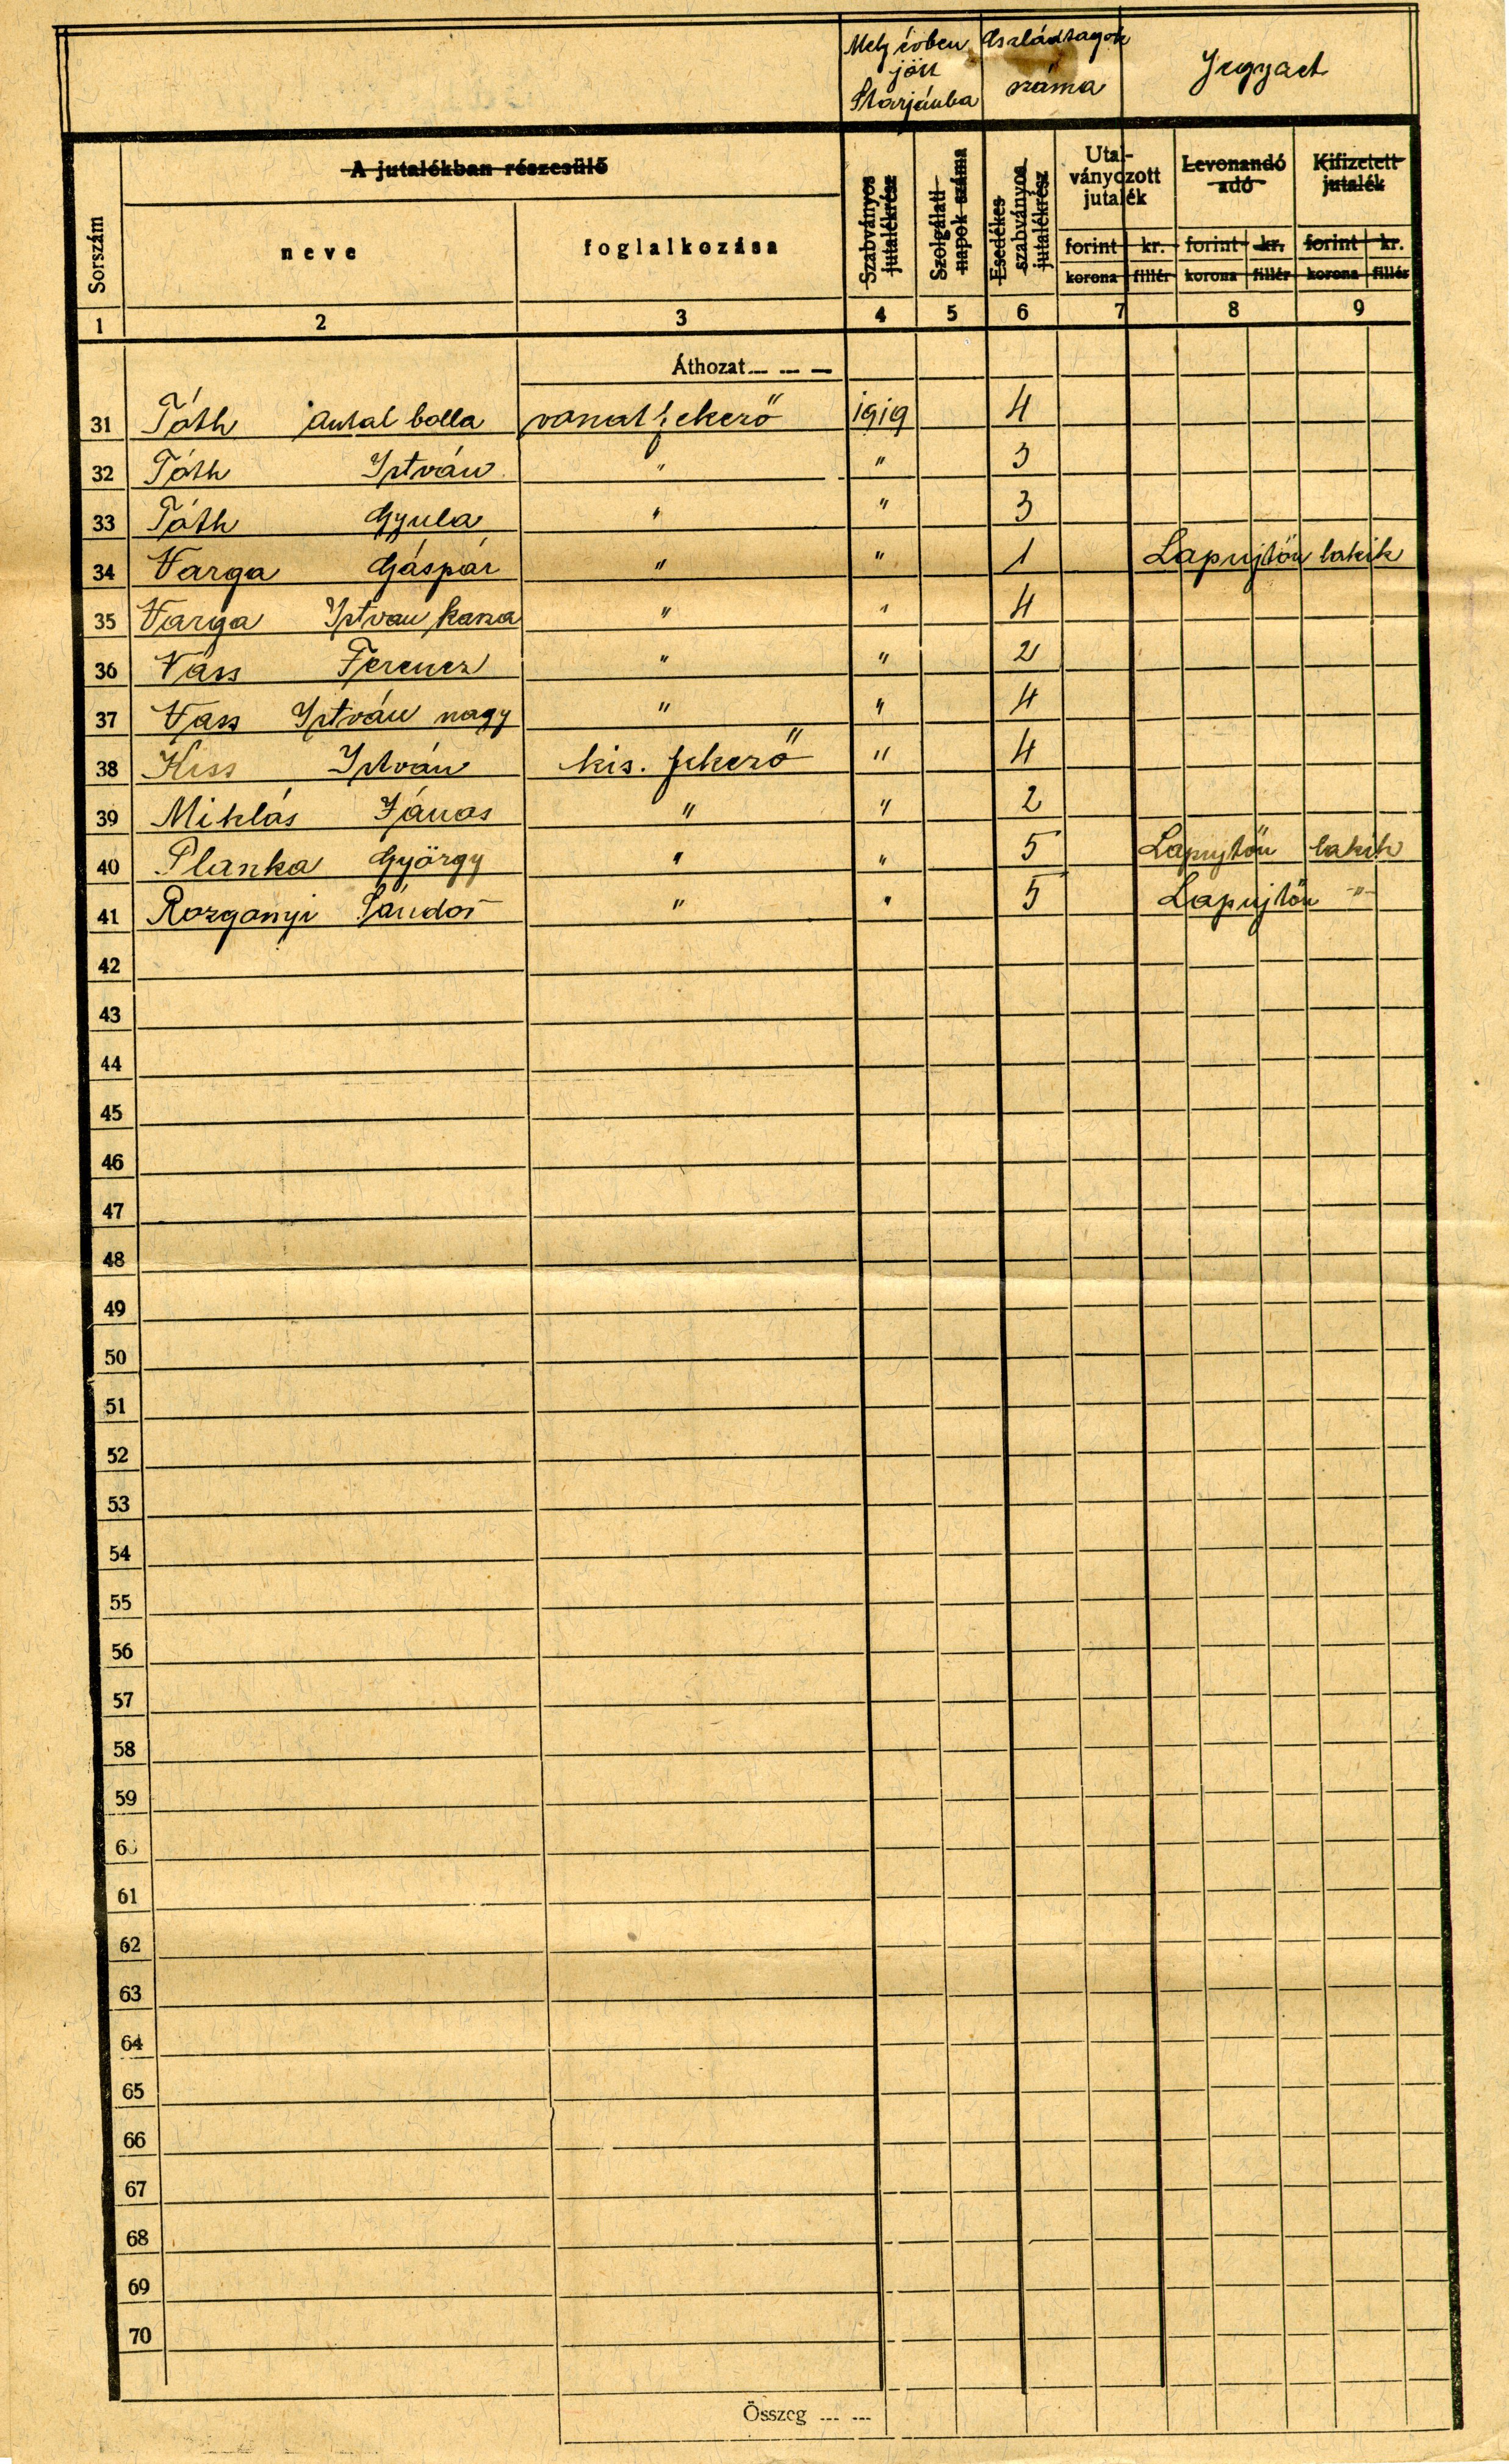 Mely évben Családtagok
jött száma Jegyzet
Starjánba
A jutalékban részesülő
Sorszám neve foglalkozása Szabványos jutalékrész Szolgálati napok száma Esedékes szabványos jutalékrész Utal-ványozott jutalék Levonandó adó Kifizetett jutalék
forint kr. forint kr. forint kr.
korona fillér korona fillér korona fillér
1 2 3 4 5 6 7 8 9
Áthozat
31 Tóth Antal bolla vonat fékező 1919 4
32 Tóth István " " 3
33 Tóth Gyula " " 3
34 Varga Gáspár " " 1 Lapujtőn lakik
35 Varga Istvan kasza " " 4
36 Vass Ferencz " " 2
37 Vass István nagy " " 4
38 Kiss István kis. fékező " 4
39 Miklós János " " 2
40 Planka György " " 5 Lapujtőn lakik
41 Rozgonyi Sándor " " 5 Lapujtőn -"-
42
43
44
45
46
47
48
49
50
51
52
53
54
55
56
57
58
59
60
61
62
63
64
65
66
67
68
69
70
Összeg